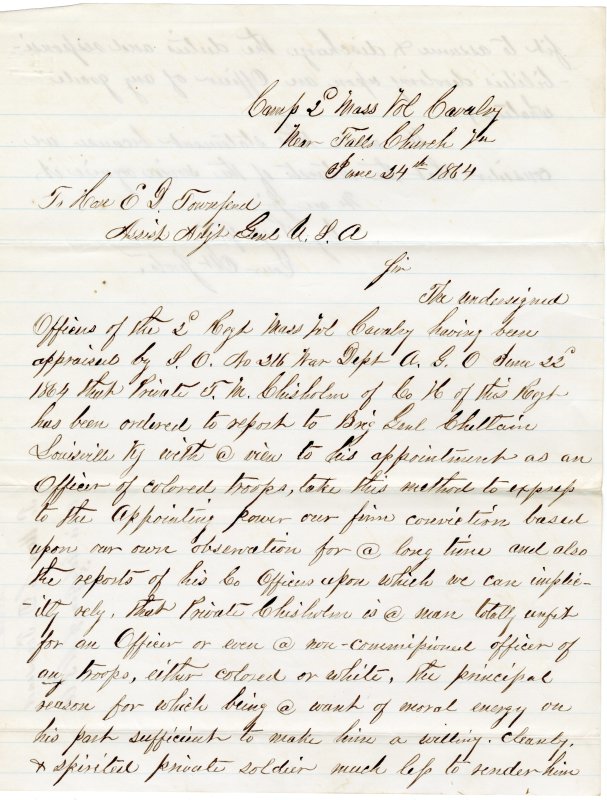 Camp 2d Mass Vol Cavalry
Near Falls Church Va
June 24th 1864
To Hon E D. Townsend
Assist Adjt Genl U. S. A
Sir
The undersigned
Officers of the 2d Regt Mass Vol Cavalry having been
appraised by S. O. No 216 War Dept A. G. O June 22d
1864 that Private T. M. Chisholm of Co H of this Regt
has been ordered to report to Brig Genl Chetlain
Louisville Ky with @ view to his appointment as an
Officer of colored troops, take this method to express
to the Appointing power our firm conviction based
upon our own observation for @ long time and also
the reports of his Co Officers upon which we can implic-
-itly rely, that Private Chisholm is @ man totally unfit
for an Officer or even @ non-commissioned officer of
any troops, either colored or white, the principal
reason for which being @ want of moral energy on
his part sufficient to make him a willing. cleanly,
& spirited private soldier much less to render him